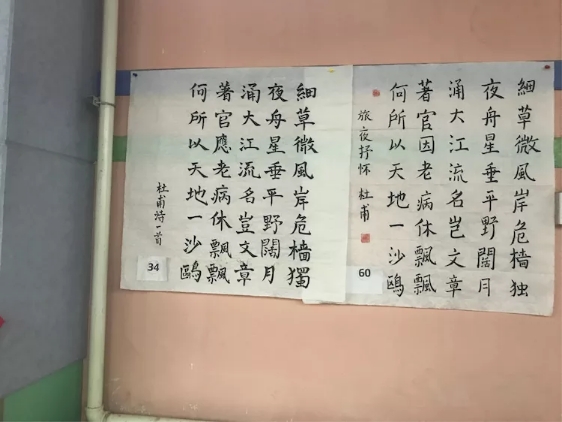 細草微風岸危檣独
夜舟星垂平野闊月
涌大江流名岂文章
著官因老病休飘飄
何所以天地一沙鴎
旅夜抒怀 杜甫
60
細草微風岸危檣獨
夜舟星垂平野闊月
涌大江流名豈文章
著官應老病休飄飄
何所以天地一沙鷗
杜甫詩一首
34